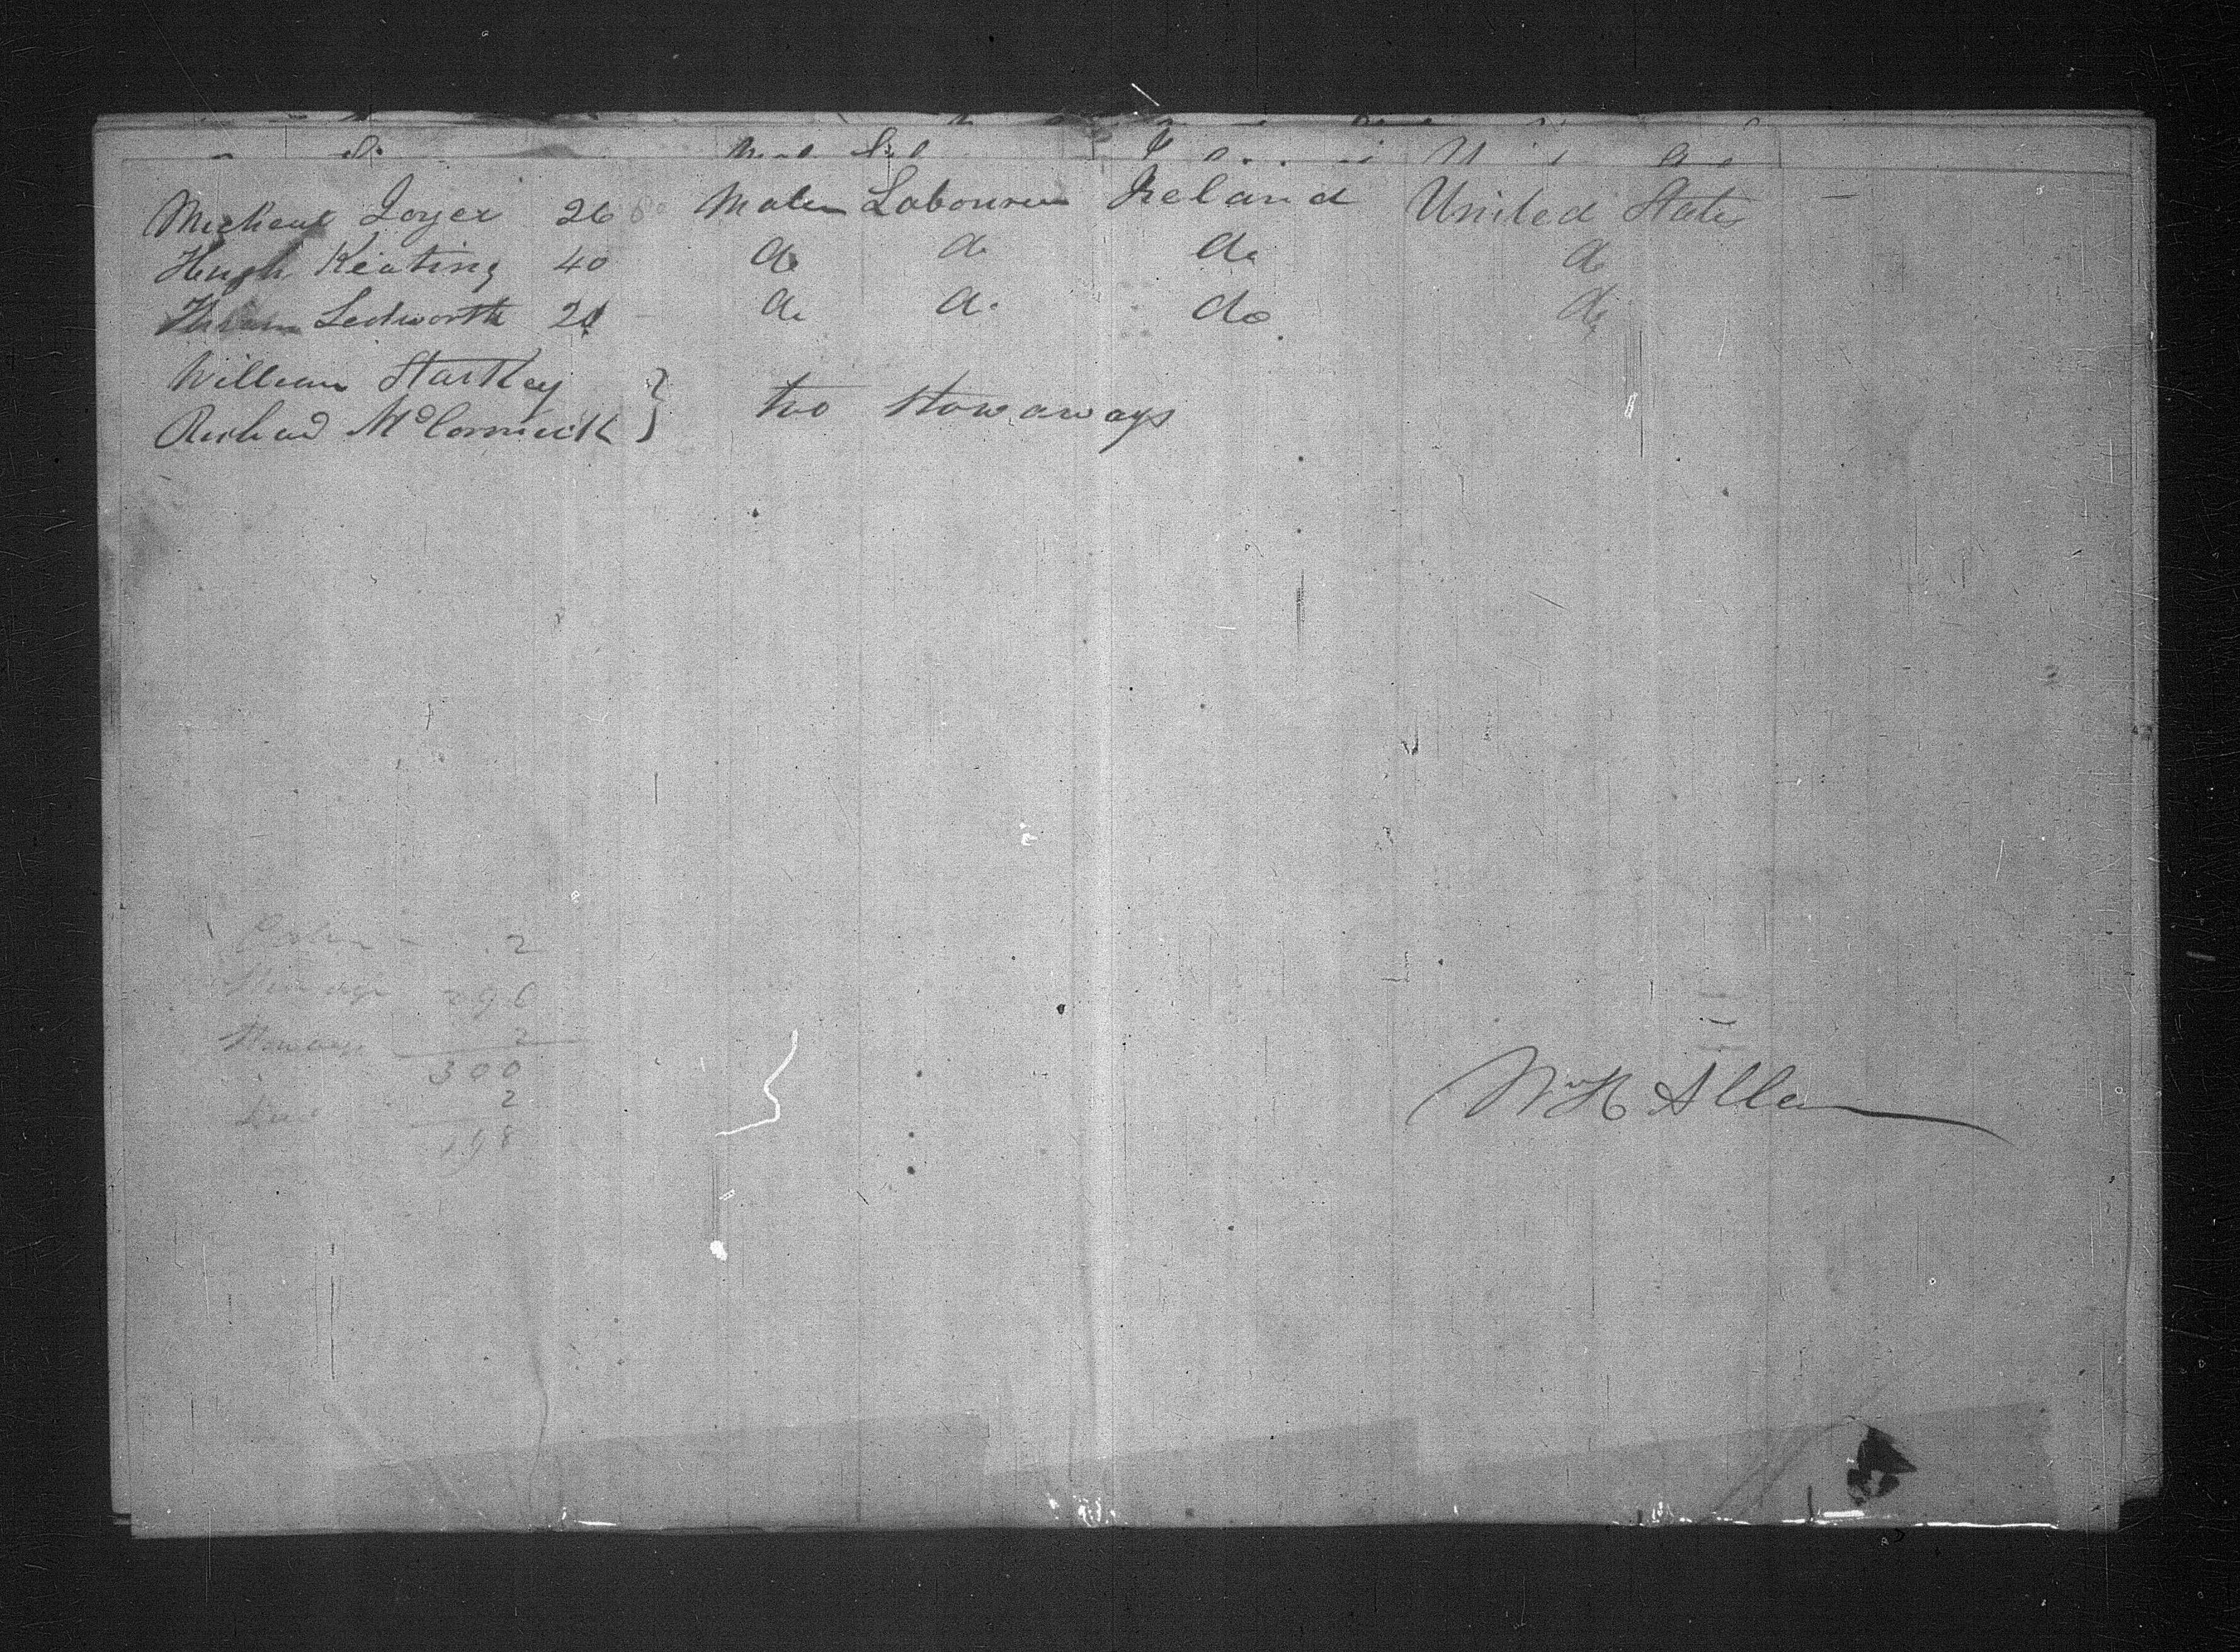 Michael Joyce 26 Male Labourer Ireland United States
Hugh Keating 40 do do do do
Ledworth do do do do
William Starkey
Richard McCormick } two Stowaways
2
Steerage 296
Stowaways 2
300
2
Wm H Allen